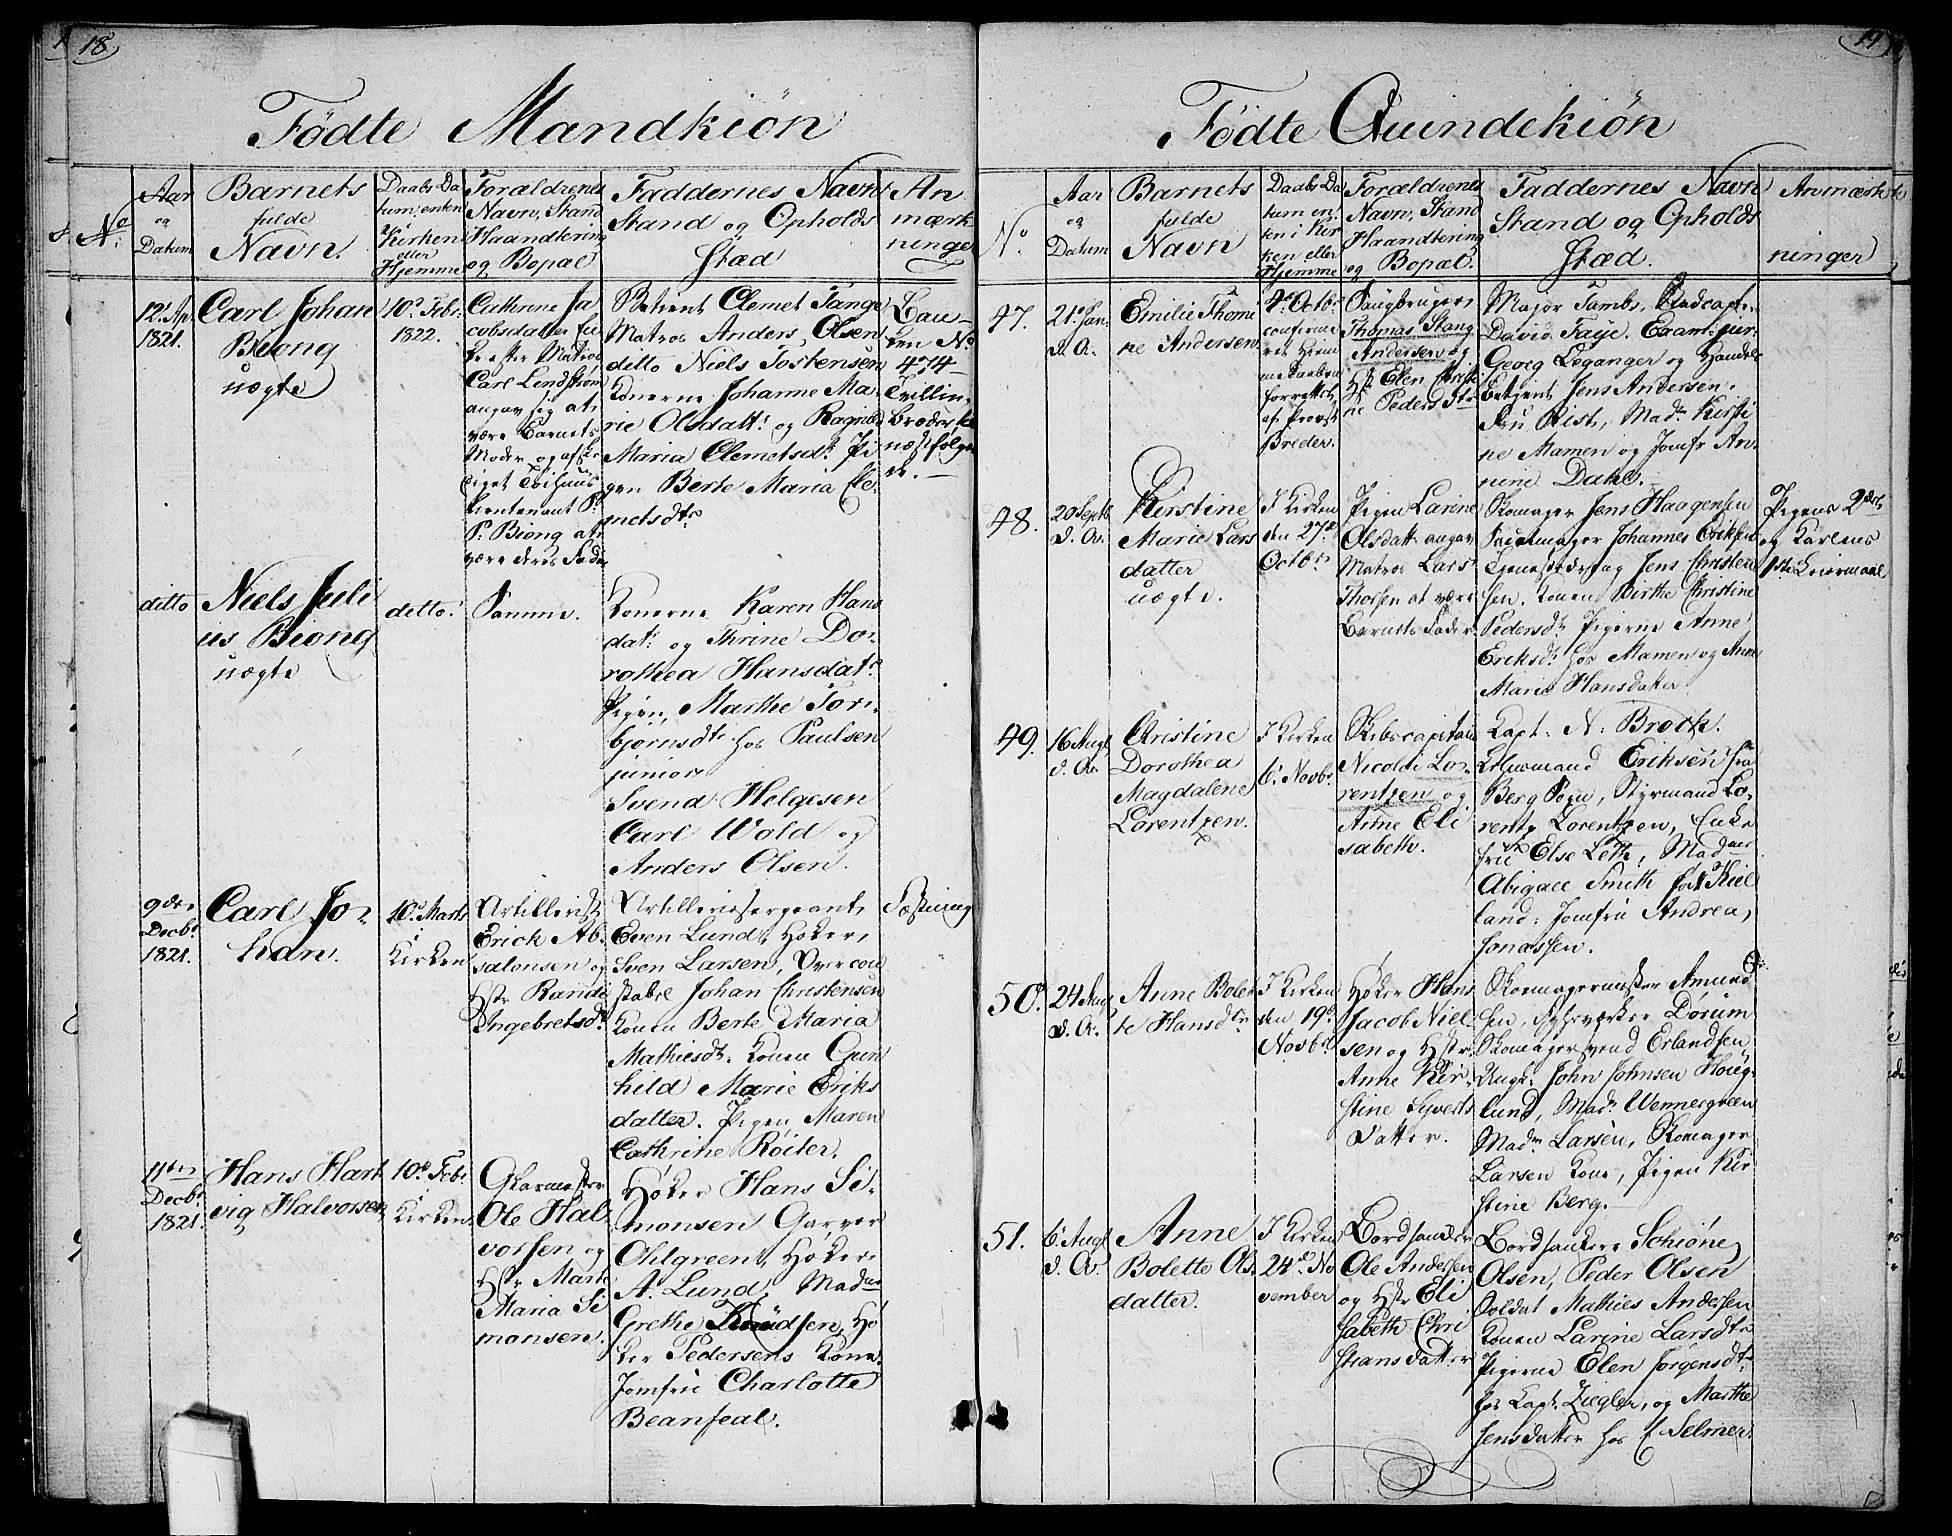 18
Födte Mandkiön
No:
Aar
og
Datum
Barnets
fulde
Navn.
Daabs Da
tum, enten
i Kirken
eller
Hjemme
Forældrenes
Navn, Stand
Haandtering
og Bopæl
Faddernes Navn
Stand og Opholds
Stæd
An
mærk
ninger
12t Ap
1821.
Carl Johan
Biong
uægte
10de Febr.
1822.
Cathrine Ja
cobsdatter
efter Matros
Carl Lindstrøm
angav sig at
være Barnets
Moder og
Lieutenant
P. Biong at
være deres Fader
Clemet Tange
Matros Anders Olsen
ditto Niels Tostensen
Konerne Johanne Ma-
rie Olsdattr og Ragnild
Maria Clemetsdtr Pi
gen Berte Maria Cle-
metsdtr
No
474
Tvillin
broder
næstfølgen
de.
ditto
Niels Juli
us Biong
uægte
ditto.
Samme.
Konerne Karen Hans
datr og Thrine Do-
rothea Hansdatr
Pigen, Marthe Tor-
bjørnsdtr hos Paulsen
junior
Svend Helgesen
Carl Wold og
Anders Olsen.
9de
Decbr
1821.
Carl Jo-
han.
10de Marts
Kirken
Artillerist
Erick Ab-
salonsen og
Hstr Randi
Ingebretsdtr
Artilleriesergeant
Even Lund, Høker
Sven Larsen, Overcon
stabel Johan Christensen
Konen Berte Maria
Mathiesdtr Konen Gun
hild Marie Eriks
datter. Pigen Maren
Cathrine Röiter.
Fæstning
11te
Decbr
1821.
Hans Hart
vig Halvorsen
10de Febr
Kirken
Glarmester
Ole Hal
vorsen og
Hstr Marte
Maria Si
monsen.
Høker Hans Si-
monsen Garver
Ohlgreen, Høker
A. Lund, Madme
Grethe Knudsen, Hø
ker Pedersens Kone
Jomfru Charlotte
Beanfeal.
19
Födte Quindekiön
No
Aar
og
Datum
Barnets
fulde
Navn
Daabs Da
tum en
ten i Kir
ken eller
Hjemme
Forældrenes
Navn, Stand
Haandtering
og Bopæl.
Faddernes Navn
Stand og Opholds
Stæd.
Anmærk
ninger
47.
21de Jan.
d. A.
Emilie Thomi
ne Andersen
4de Octbr
confirme
ret Hiem
medaaben
forrettet
af Provst
Breder.
Saugbruger
Thomas Stang
Andersen og
Hstr Elen Christi
ne Pedersdtr
Major Tambs, Stadcapt.
David Faye. Exam: jur:
Georg Leganger og Handels
Betjent Jens Andersen.
Fru Rist, Madm Kirsti
ne Mamen og Jomfr An
nine Dahl.
48.
20 Septb
d. A.
Kirstine
Marie Lars
datter
uægte.
I Kirken
den 27de
Octbr
Pigen Larine
Olsdattr angav
Matros Lars
Thorsen at være
Barnets Fader
Skomager Jens Haagensen
Johannes Eriksen
Tjenestedreng Jens Christen
sen. Konen Birthe Christine
Pedersdtr Pigerne Anne
Eriksdtr hos Mamen og Anne
Marie Hansdatter
Pigens 2det
og Karlens
1ste Leiermaal
49.
16 Augt
d. A.
Cristine
Dorothea
Magdalene
Lorentzen.
I Kirken
6 Novbr
Skibscapitain
Nicolai Lo-
rentzen og
Anne Eli
sabeth.
Capt: N: Brock.
Eriksen fra
Berg Sogn, Styrmand Lo-
rentz Lorentzen, Enke
frue Else Leth, Madme
Abigael Smith født Kiel
land: Jomfru Andrea
Jonassen.
50.
24 Aug
d. A.
Anne Bolet
te Hansdtr
I Kirken
den 19de
Novbr
Høker Hans
Jacob Niel-
sen og Hstr
Anne Kir-
stine Syverts
datter.
Skomagermester Amund
sen, Dørum
Skomagersvend Erlandsen
Ungk. John Johnsen Houg-
lund, Madm Wennergreen
Madm Larsen, Skomager
Larsen Kone, Pigen Kir
stine Berg.
51.
6 Augt
d. A.
Anne
Bolette Ols-
datter.
I Kirken
24de No
vember
Bordsanker
Ole Andersen
og Hstr Eli
sabeth Chri
stiansdatter
Bordsankere Schiöne
Olsen, Peder Olsen
Soldat Mathies Andersen
Konen Larine Larsdtr
Pigerne Elen Jørgensdtr
hos Capt. Ziegler, og Marthe
Jensdatter hos f Selmer.